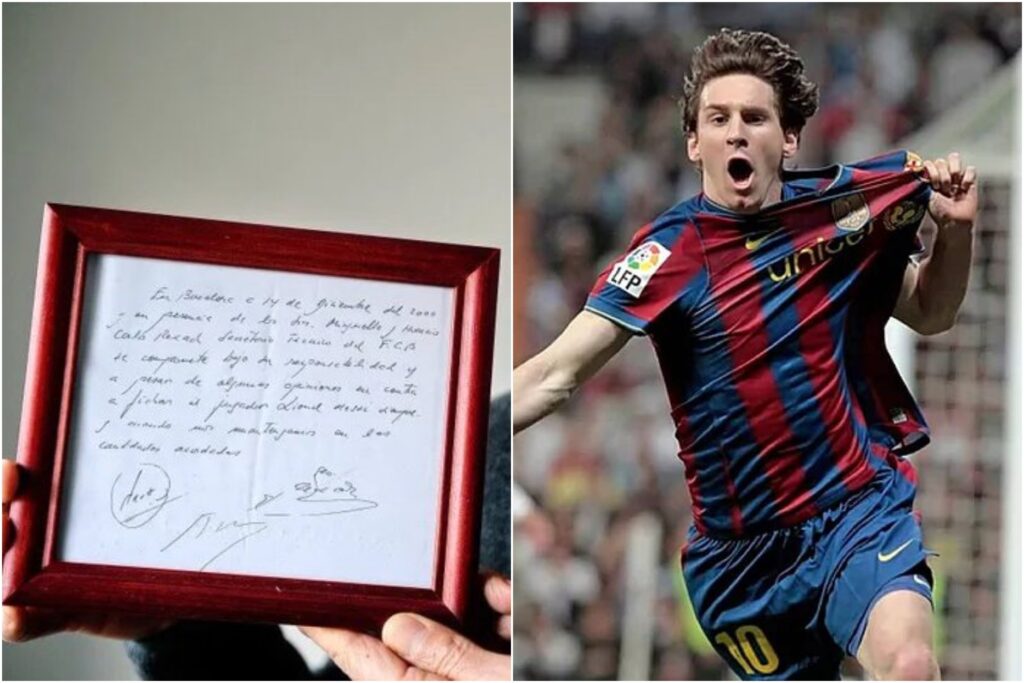 En Barcelona a 14 de Diciembre del 2000
y en presencia de los Srs. Minguella y Horacio
Carlos Rexach Secretario Técnico del F.C.B
se compromete bajo su responsabilidad y
a pesar de algunas opiniones en contra
a fichar al jugador Lionel Messi siempre
y cuando nos mantengamos en las
cantidades acordadas
LFP
unicef
10